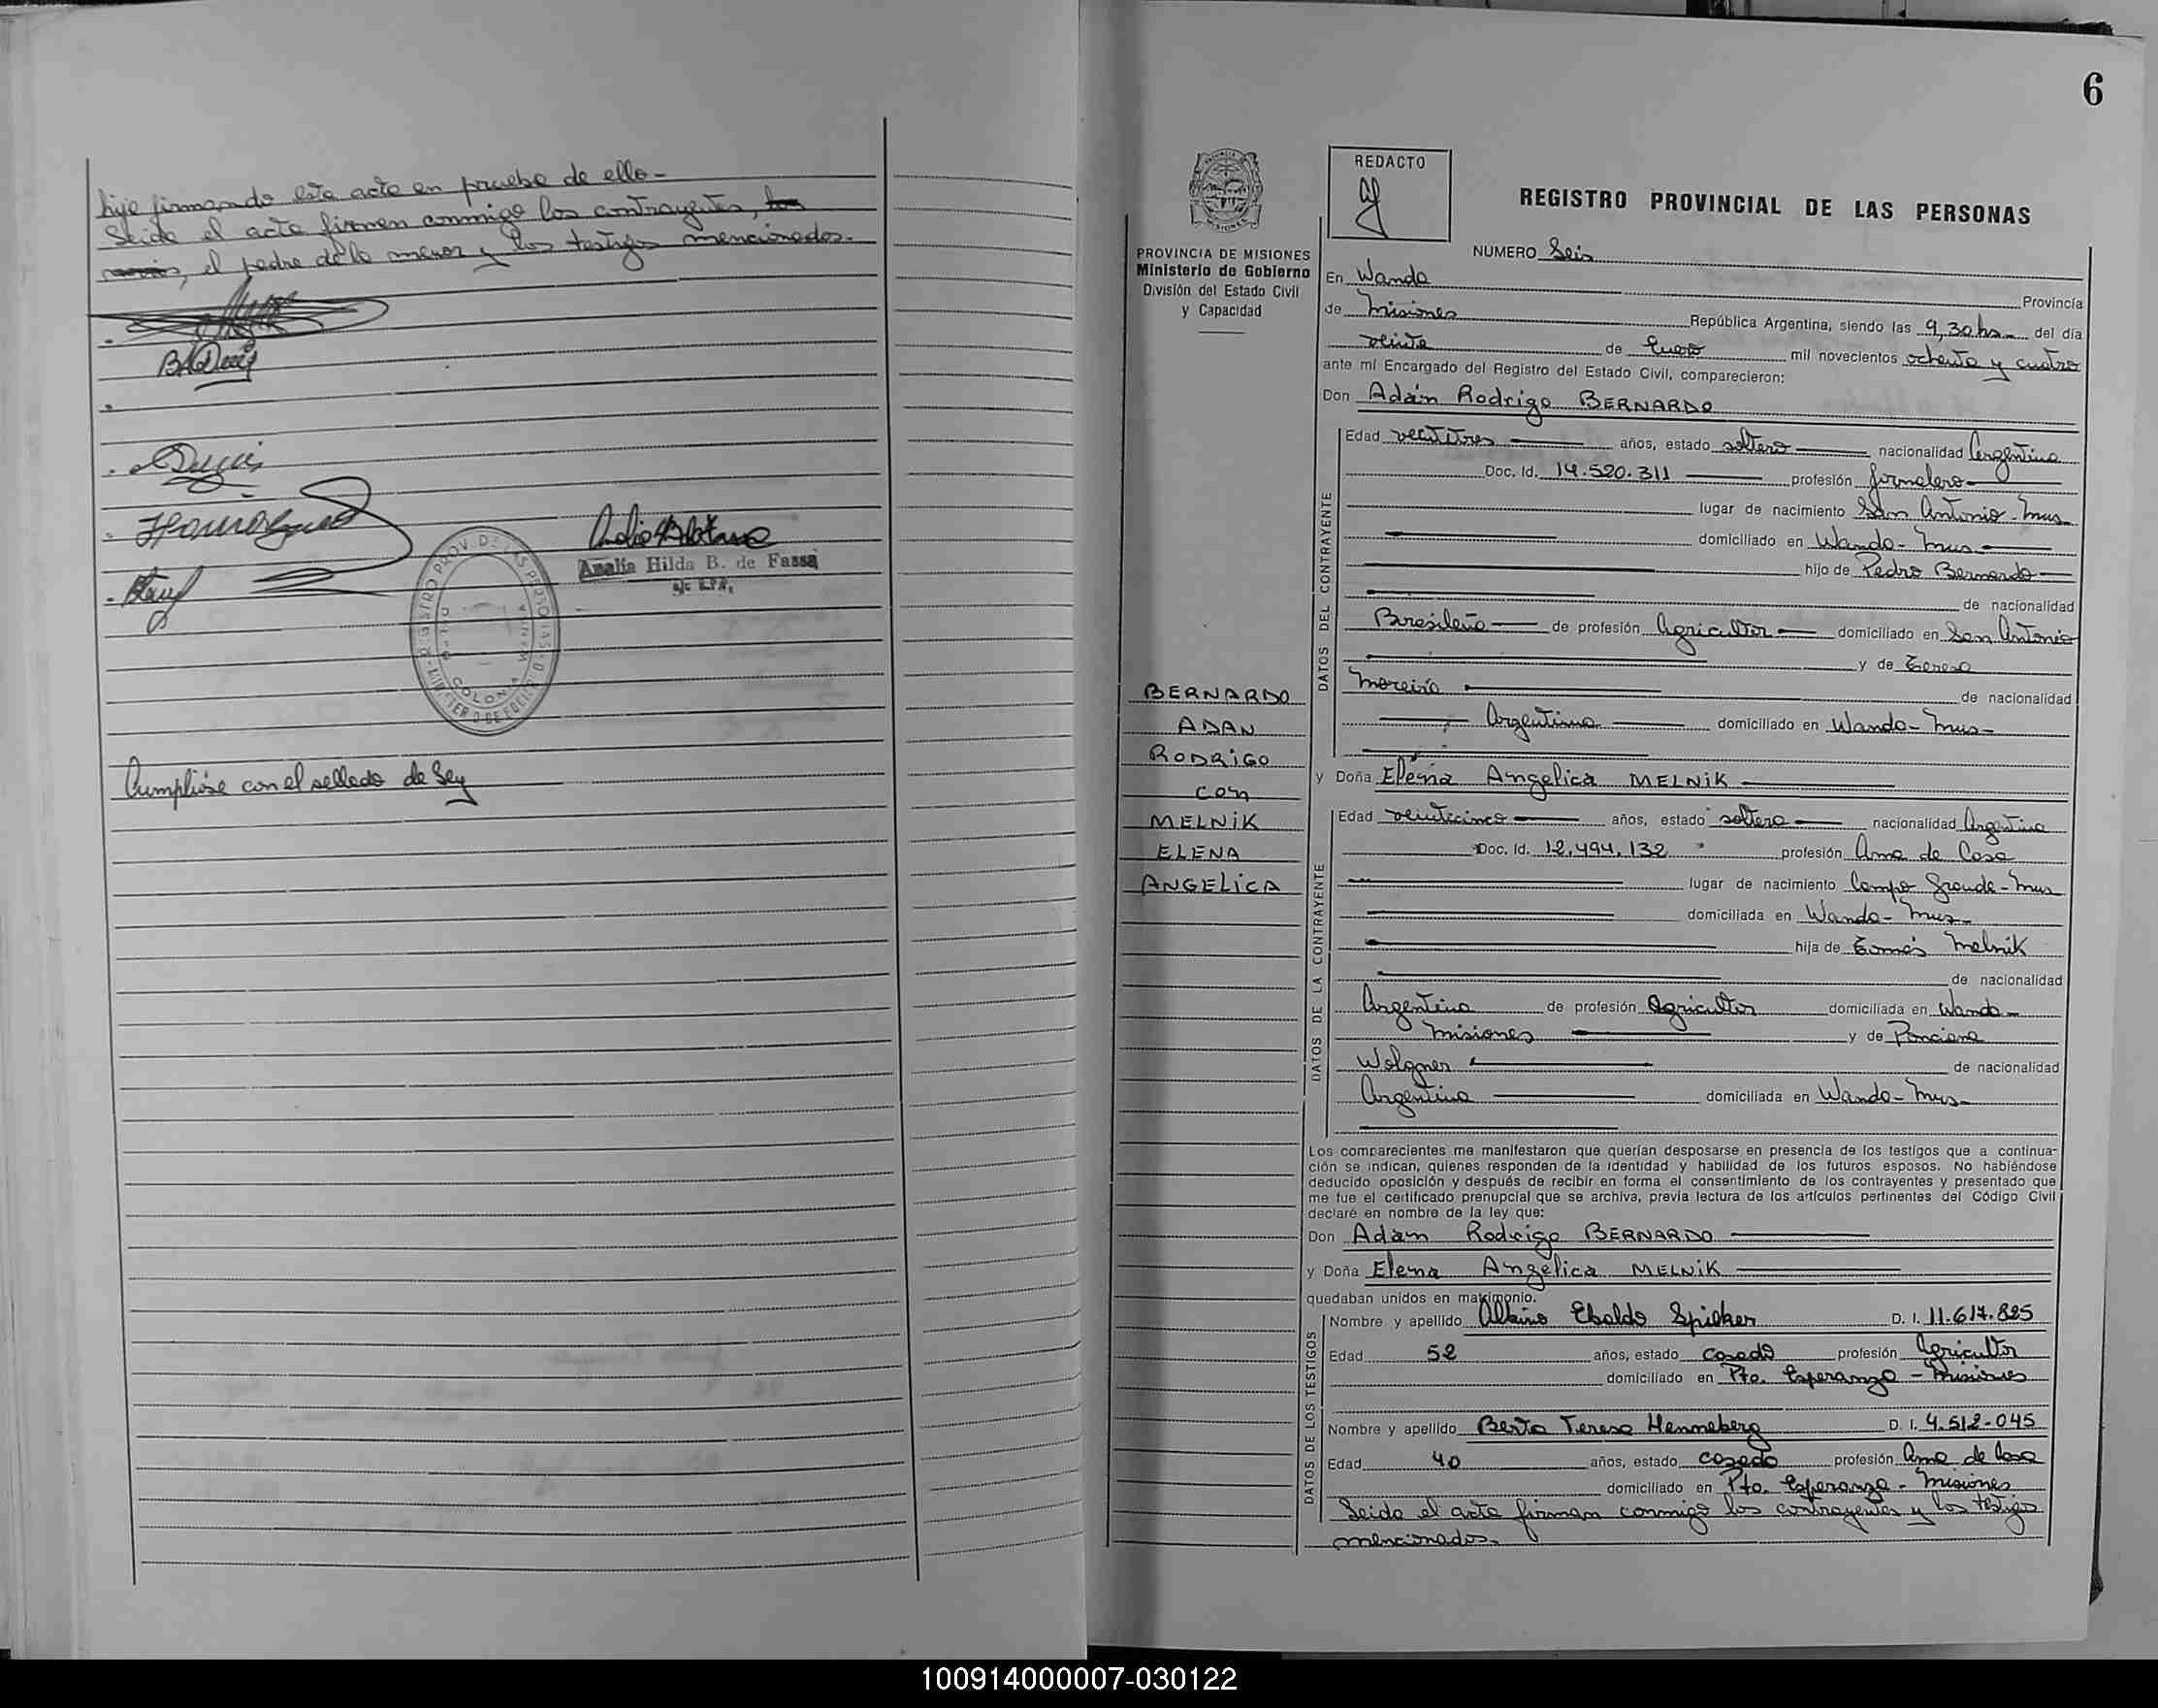 hija firmando esta acta en prueba de ello-
Leida el acta firman conmigo los contrayentes, los
, el padre de la menor y los testigos mencionados.-
Analia Hilda B. de Fassa
a/c R.P.P.
Cumplióse con el sellado de Ley
6
REDACTO
REGISTRO PROVINCIAL DE LAS PERSONAS
PROVINCIA DE MISIONES
Ministerio de Gobierno
División del Estado Civil
y Capacidad
NUMERO Seis
En Wanda
Provincia
de Misiones República Argentina, siendo las 9,30 hs del día
veinte de Enero mil novecientos ochenta y cuatro
ante mí Encargado del Registro del Estado Civil, comparecieron:
Don Adán Rodrigo BERNARDO
DATOS DEL CONTRAYENTE
Edad veintitres años, estado soltero nacionalidad Argentina
Doc. Id. 14.520.311 profesión jornalero
lugar de nacimiento San Antonio-Mnes
domiciliado en Wanda-Mnes
hijo de Pedro Bernardo
de nacionalidad
Brasileña de profesión Agricultor domiciliado en San Antonio
y de Teresa
Moreira de nacionalidad
Argentina domiciliado en Wanda-Mnes
BERNARDO
ADAN
RODRIGO
con
MELNIK
ELENA
ANGELICA
y Doña Elena Angelica MELNIK
DATOS DE LA CONTRAYENTE
Edad veinticinco años, estado soltera nacionalidad Argentina
Doc. Id. 12.494.132 profesión Ama de Casa
lugar de nacimiento Campo Grande-Mnes
domiciliada en Wanda-Mnes
hija de Tomás Melnik
de nacionalidad
Argentina de profesión Agricultor domiciliada en Wanda-
Misiones y de Ponciana
Wolagner de nacionalidad
Argentina domiciliada en Wanda-Mnes
Los comparecientes me manifestaron que querían desposarse en presencia de los testigos que a continua-
ción se indican, quienes responden de la identidad y habilidad de los futuros esposos. No habiéndose
deducido oposición y después de recibir en forma el consentimiento de los contrayentes y presentado que
me fue el certificado prenupcial que se archiva, previa lectura de los artículos pertinentes del Código Civil
declaré en nombre de la ley que:
Don Adán Rodrigo BERNARDO
y Doña Elena Angelica MELNIK
quedaban unidos en matrimonio.
DATOS DE LOS TESTIGOS
Nombre y apellido Albino Ebaldo Spieker D. I. 11.617.825
Edad 52 años, estado casado profesión Agricultor
domiciliado en Pto. Esperanza - Misiones
Nombre y apellido Berta Teresa Henneberg D. I. 4.512.045
Edad 40 años, estado casada profesión Ama de Casa
domiciliado en Pto. Esperanza - Misiones
Leida el acta firman conmigo los contrayentes y los testigos
mencionados.
100914000007-030122